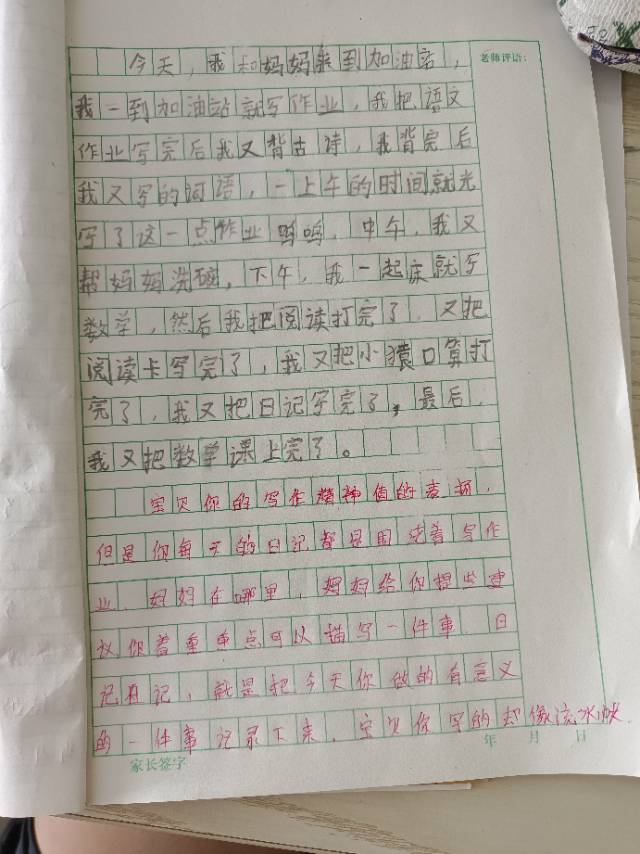 今天，我和妈妈来到加油站，
老师评语：
我一到加油站就写作业，我把语文
作业写完后我又背古诗，我背完后
我又写的词语，一上午的时间就光
写了这一点作业呜呜，中午，我又
帮妈妈洗碗，下午，我一起床就写
数学，然后我把阅读打完了，又把
阅读卡写完了，我又把小猿口算打
完了，我又把日记写完了，最后，
我又把数学课上完了。
宝贝你的写作精神值的表扬，
但是你每天的日记都是围绕着写作
业，妈妈在哪里，妈妈给你提些建
议你着重重点可以描写一件事，日
记日记，就是把今天你做的有意义
的一件事记录下来，宝贝你写的却像流水账
年 月 日
家长签字